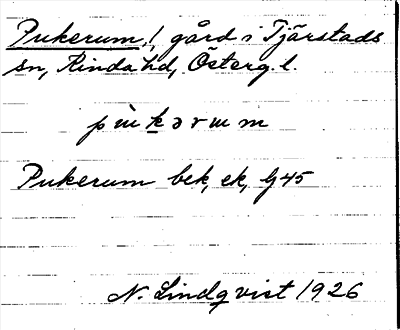 Pukerum, !, gård i Tjärstads
sn, Kinda hd, Österg. l.
pɯ̀kərɯm
Pukerum bek, ek, Gj45
N. Lindqvist 1926